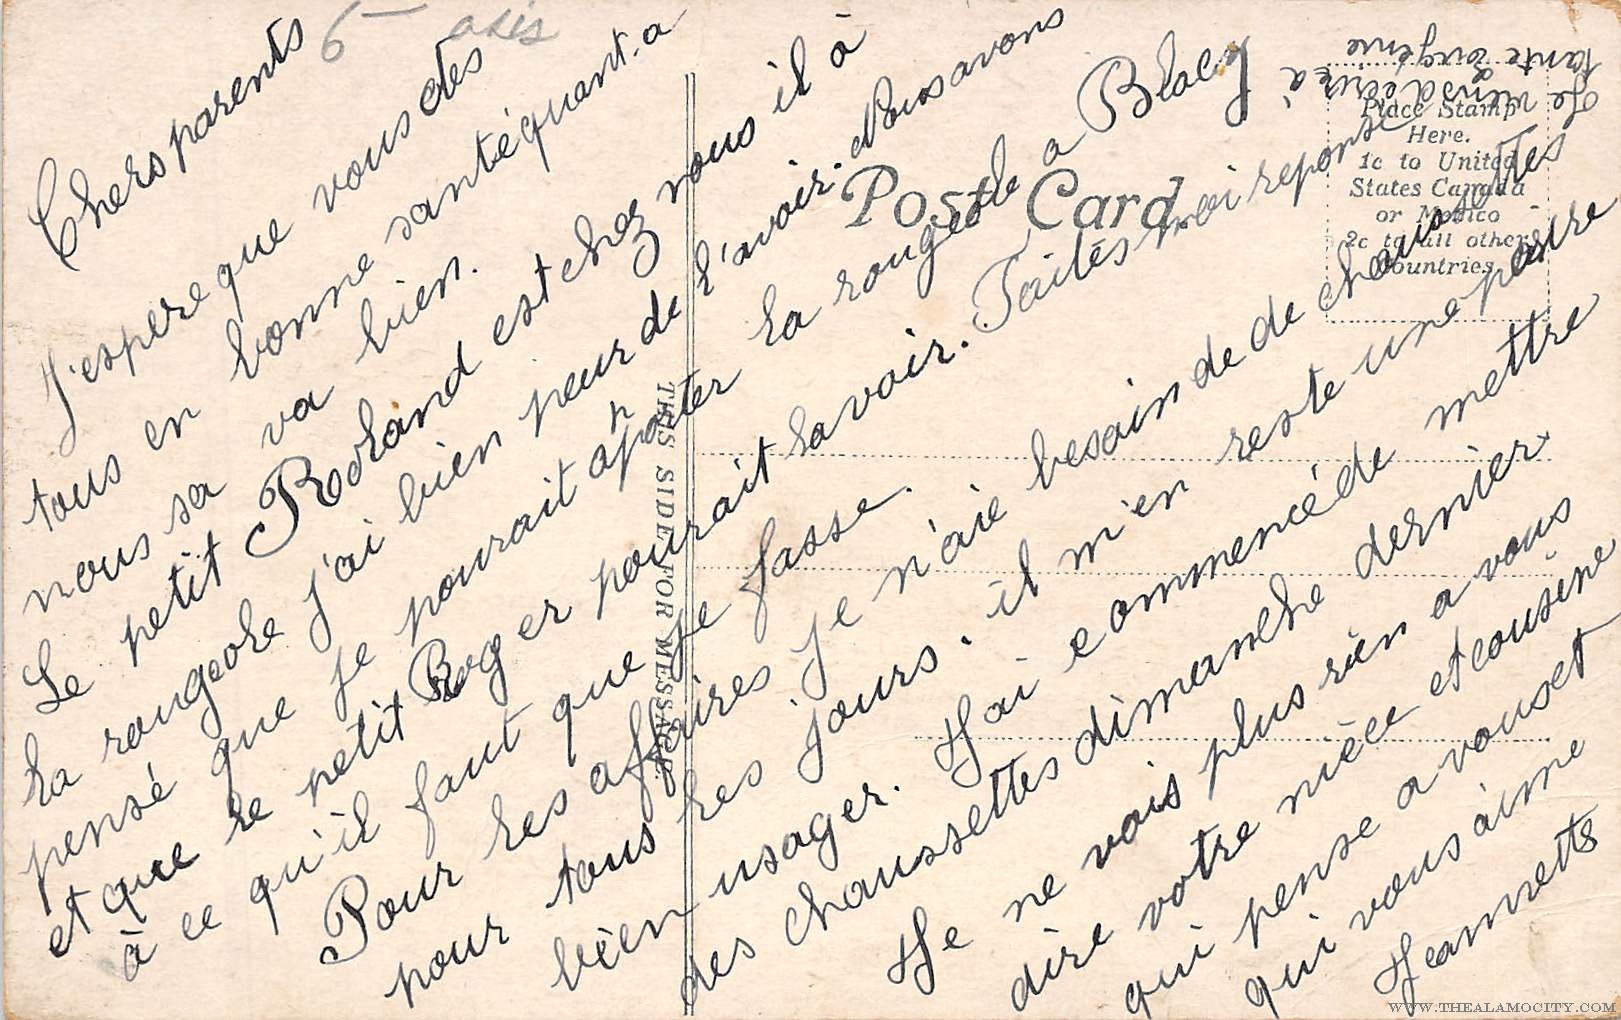 6 - axis
Chers parents
J'espere que vous êtes
tous en bonne santé quant-a
nous sa va bien.
Le petit Roland est chez nous il à
la rougeole j'ai bien peur de l'avoir. Nous avons
pensé que je pourait aporter la rougeole a Blacy
et que le petit Roger pourait l'avoir. Faites moi reponse
à ce qu'il faut que je fasse.
Pour les affaires je n'aie besoin de de chaussettes
pour tous les jours. il m'en reste une pastre
bien usager. J'ai commencé de mettre
des chaussettes dimanche dernier
Je ne vais plus rien a vous
dire votre nièce et cousine
qui pense a vous et
qui vous àime
Jeannette
Je viens d'ecrire à
tante Eugénie
Post Card
Place Stamp
Here.
1c to United
States Canada
or Mexico
2c to all other
Countries
THIS SIDE FOR MESSAGE.
WWW.THEALAMOCITY.COM